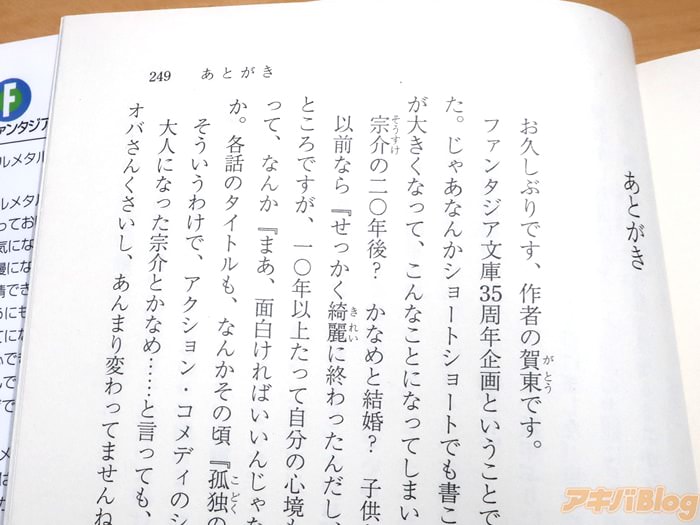 249 あとがき
あとがき
お久しぶりです、作者の賀東です。
がとう
ファンタジア文庫35周年企画ということで
た。じゃあなんかショートショートでも書こ
が大きくなって、こんなことになってしまい
宗介の二〇年後? かなめと結婚? 子供
そうすけ
以前なら『せっかく綺麗に終わったんだし、
きれい
ところですが、一〇年以上たって自分の心境も
って、なんか『まあ、面白ければいいんじゃな
か。各話のタイトルも、なんかその頃『孤独の
こどく
そういうわけで、アクション・コメディのシ
大人になった宗介とかなめ……と言っても、
オバさんくさいし、あんまり変わってませんね
F
ァンタジア
ルメタル
ルメタル
ってお
気にな
慢にな
情でき
うにも
てにな
アキバBlog